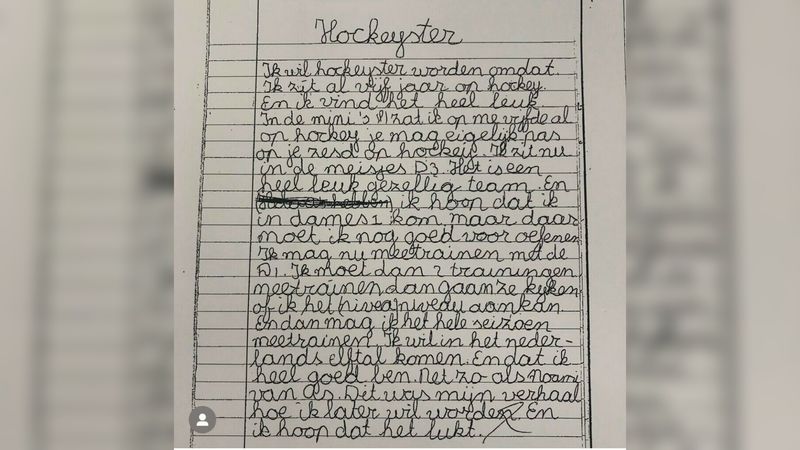 Hockeyster
Ik wil hockeyster worden omdat.
Ik zit al vijf jaar op hockey.
En ik vind het heel leuk
In de mini's zat ik op me vijfde al
op hockey je mag eigelijk pas
op je zesd op hockey. Ik zit nu
in de meisjes D3. Het is een
heel leuk gezellig team. En
ik hoop dat ik
in dames 1 kom maar daar
moet ik nog goed voor oefenen
Ik mag nu meetrainen met de
D1. Ik moet dan 2 trainingen
meetrainen dan gaan ze kijken
of ik het niveau aankan.
En dan mag ik het hele seizoen
meetrainen. Ik wil in het neder-
lands elftal komen. En dat ik
heel goed ben. Net zo als Noami
van As. Dit was mijn verhaal
hoe ik later wil worden. En
ik hoop dat het lukt.